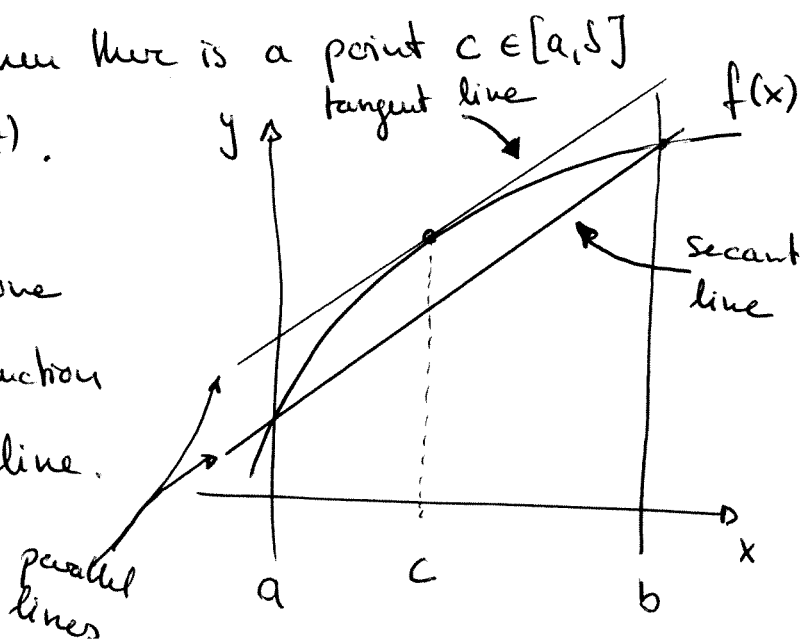 then there is a point c ∈ [a,b]
tangent line
f(x)
y
).
secant
line
one
function
line.
parallel
lines
a
c
b
x